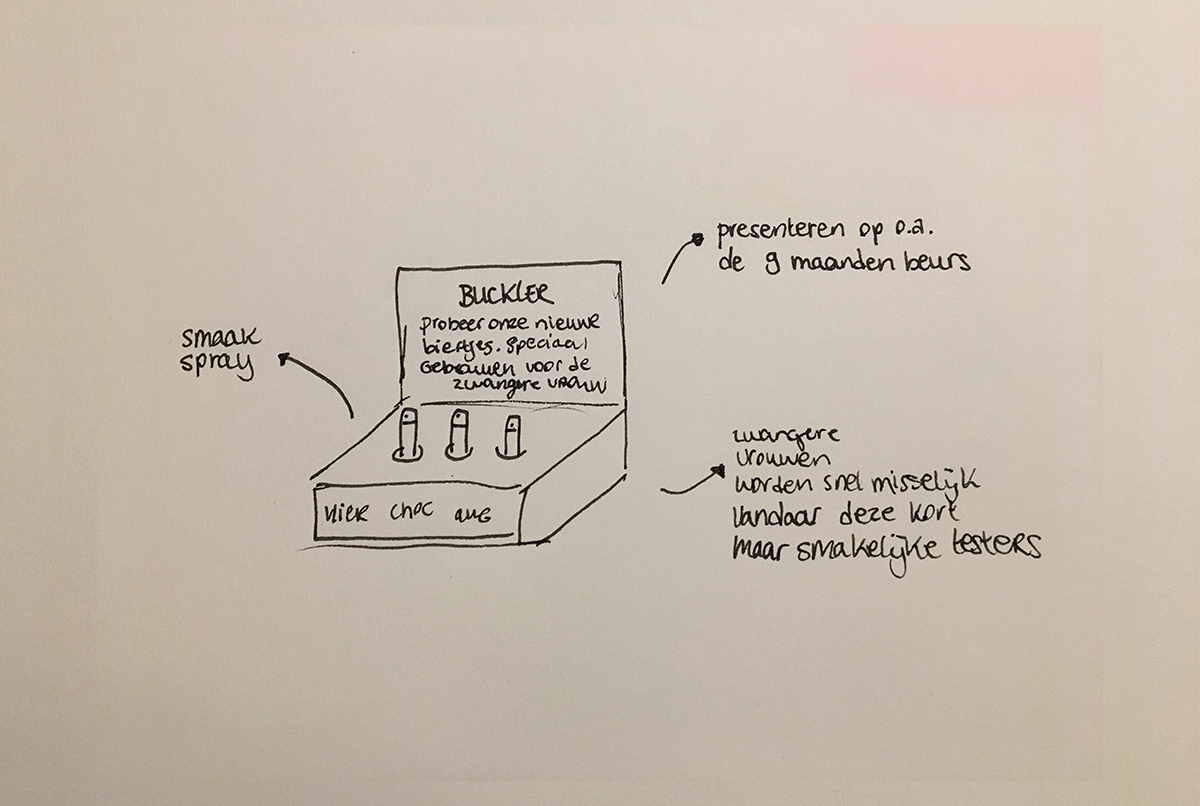 presenteren op o.a.
de 9 maanden beurs
BUCKLER
probeer onze nieuwe
biertjes. speciaal
Gebrouwen voor de
zwangere vrouw
smaak
spray
choc
zwangere
vrouwen
worden snel misselijk
vandaar deze kort
maar smakelijke testers